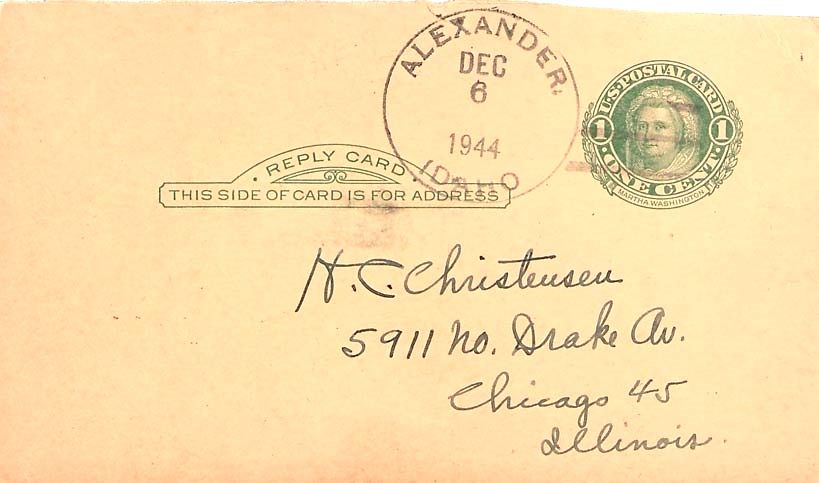 ALEXANDER.
DEC
6
1944
IDAHO
U.S. POSTAL CARD
1 1
ONE CENT
MARTHA WASHINGTON
REPLY CARD
THIS SIDE OF CARD IS FOR ADDRESS
H. C. Christensen
5911 No. Drake Av.
Chicago 45
Illinois